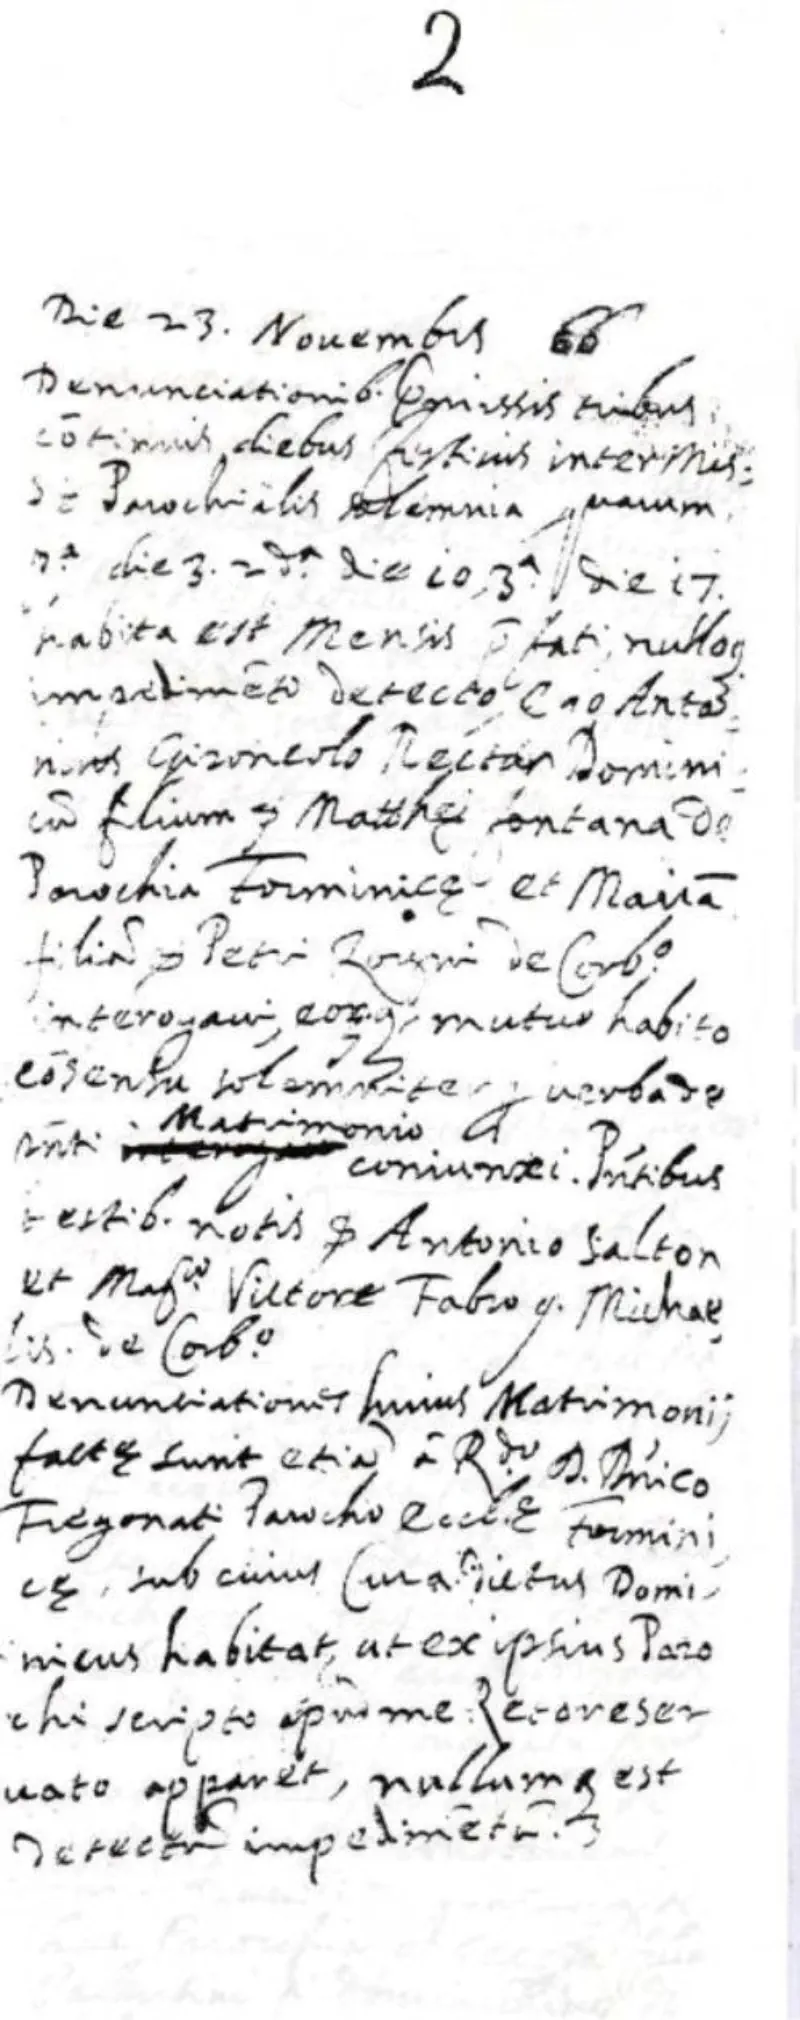 2
Die 23. Novembris 66
Denunciationib. p̃missis tribus
cōtinuis diebus festiuis inter Mis:
Parochialis solemnia quarum
die 3. 2dа. die 10, 3ª. die 17.
habita est Mensis p̄fati, nulloq
impedimēto detecto Ego Anto=
nius Gironcolo Rector Domini=
cū filium q Matthęi fontana de
Parochia Forminicę et Mariā
filiā q Petri de Corb.º
interogaui, eorq, mutuo habito
cōsensu solemniter p uerba de
p̄nti Matrimonio
coniunxi. Pñtibus
testib. notis Antonio Salton
et Mag.co Vittore Fabro q. Michae
lis. de Corb.º
Denunciationes huius Matrimonij
factę sunt etiā ā R.do D. Dñico
Fregonati Parocho Ecclę Formini
cę, sub cuius Cura dictus Domi-
nicus habitat, ut ex ipsius Paro
chi scripto apud me Retore ser
uato apparet, nullumq est
detectū impedimētū.